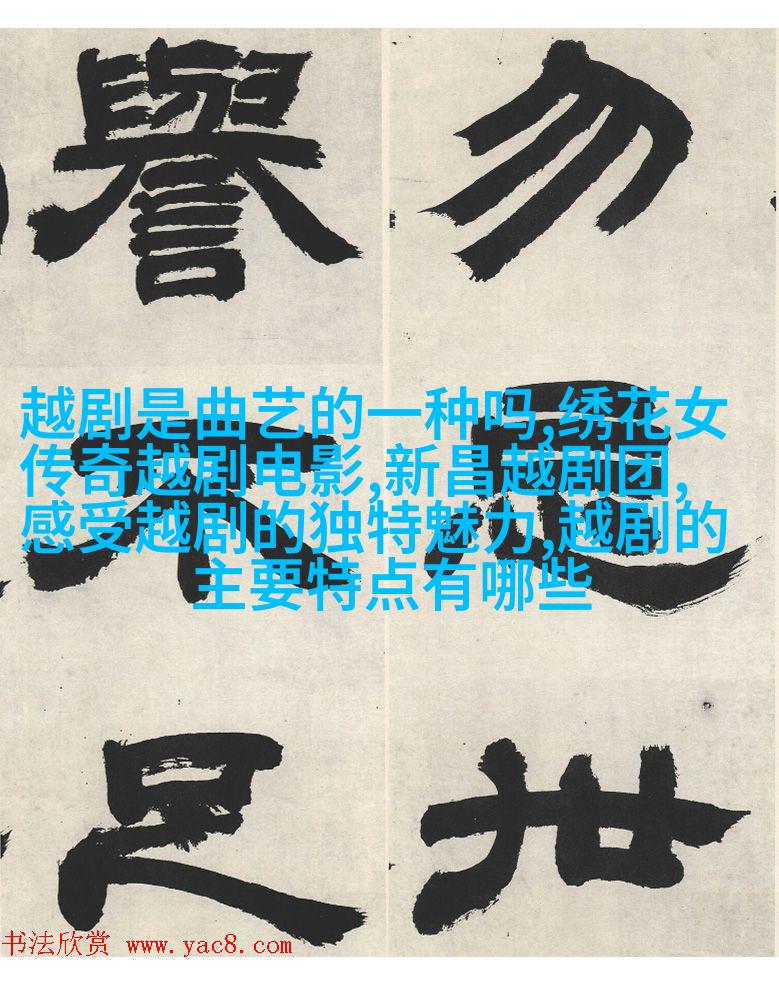 勿忘世
譽不足
越剧是曲艺的一种吗,绣花女
传奇越剧电影,新昌越剧团,
感受越剧的独特魅力,越剧的
主要特点有哪些
书法欣赏 www.yac8.com